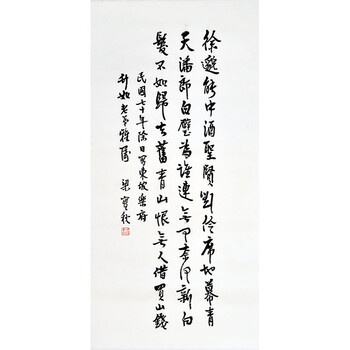 徐邈能中酒聖賢劉伶席地幕青
天潘郎白璧為誰連無可奈何新白
髮不如歸去舊青山恨無人借買山錢
民國七十年除日寫東坡樂府
升如老弟雅屬 梁實秋